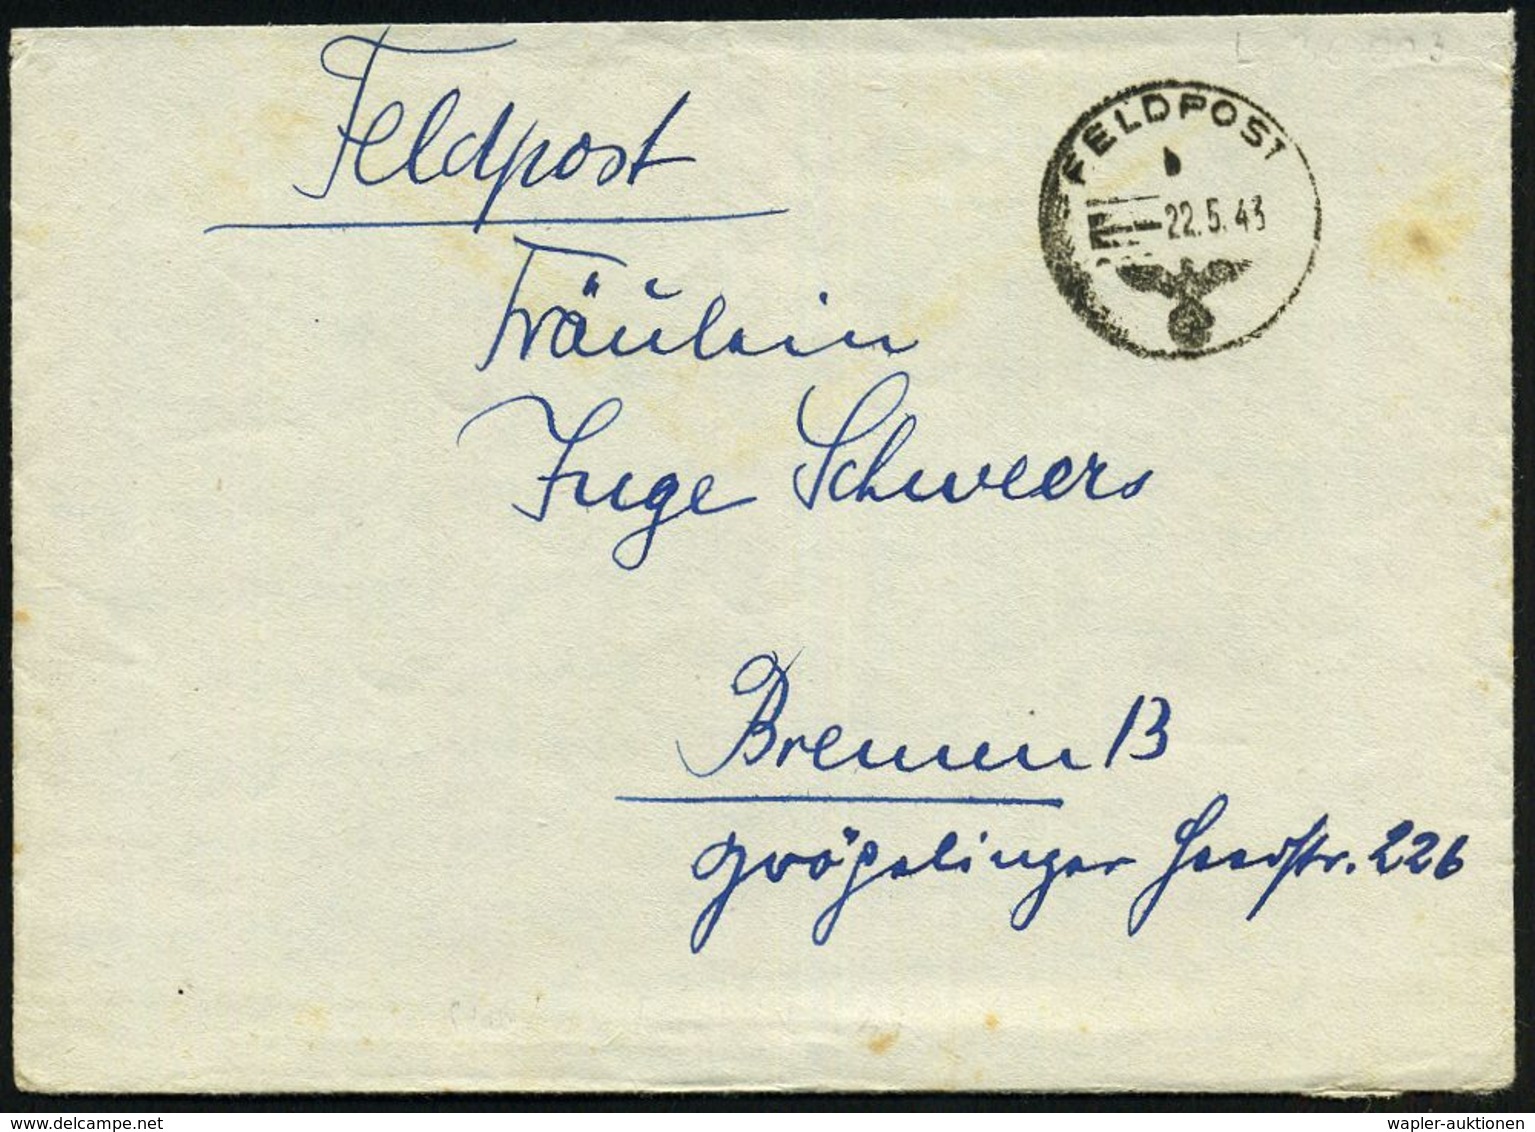 Feldpost
FELDPOST
b
22.5.43
Fräulein
Inge Schweers
Bremen 13
Gröpelinger Heerstr. 226
wapler-auktionen